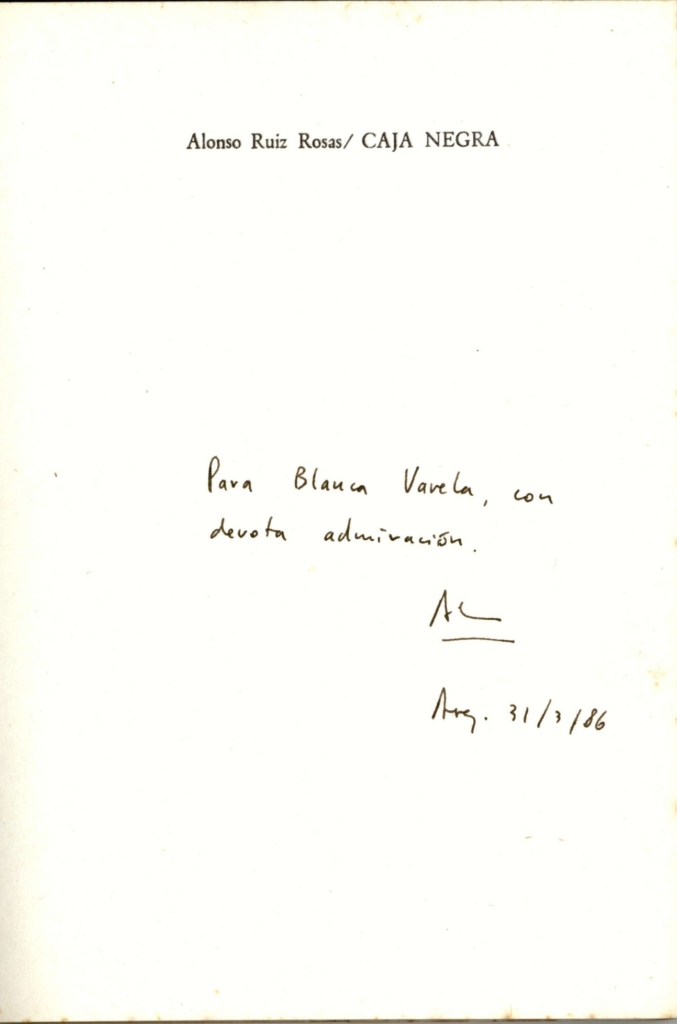 Alonso Ruiz Rosas/ CAJA NEGRA
Para Blanca Varela, con
devota admiración.
Arq. 31/3/86